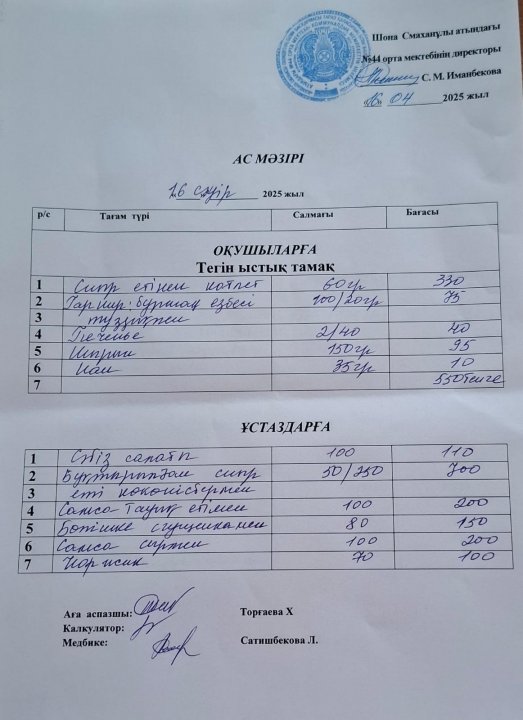 Шона Смаханұлы атындағы
№44 орта мектебінің директоры
С. М. Иманбекова
«16» 04 2025 жыл
АС МӘЗІРІ
16 сәуір 2025 жыл
р/с Тағам түрі Салмағы Бағасы
ОҚУШЫЛАРҒА
Тегін ыстық тамақ
1 Сиыр етінен котлет 60гр 330
2 Гарнир: бұршақ езбесі 100/20гр 75
3 тұздықпен
4 Печенье 2/40 40
5 150гр 95
6 Нан 35гр 10
7 550теңге
ҰСТАЗДАРҒА
1 Сәбіз салаты 100 110
2 Бұқтырылған сиыр 50/250 700
3 еті көкөністермен
4 Самса тауық етімен 100 200
5 Бәтішке сгущенкамен 80 150
6 Самса сырмен 100 200
7 70 100
Аға аспазшы: Торғаева Х
Калкулятор:
Медбике: Сатишбекова Л.